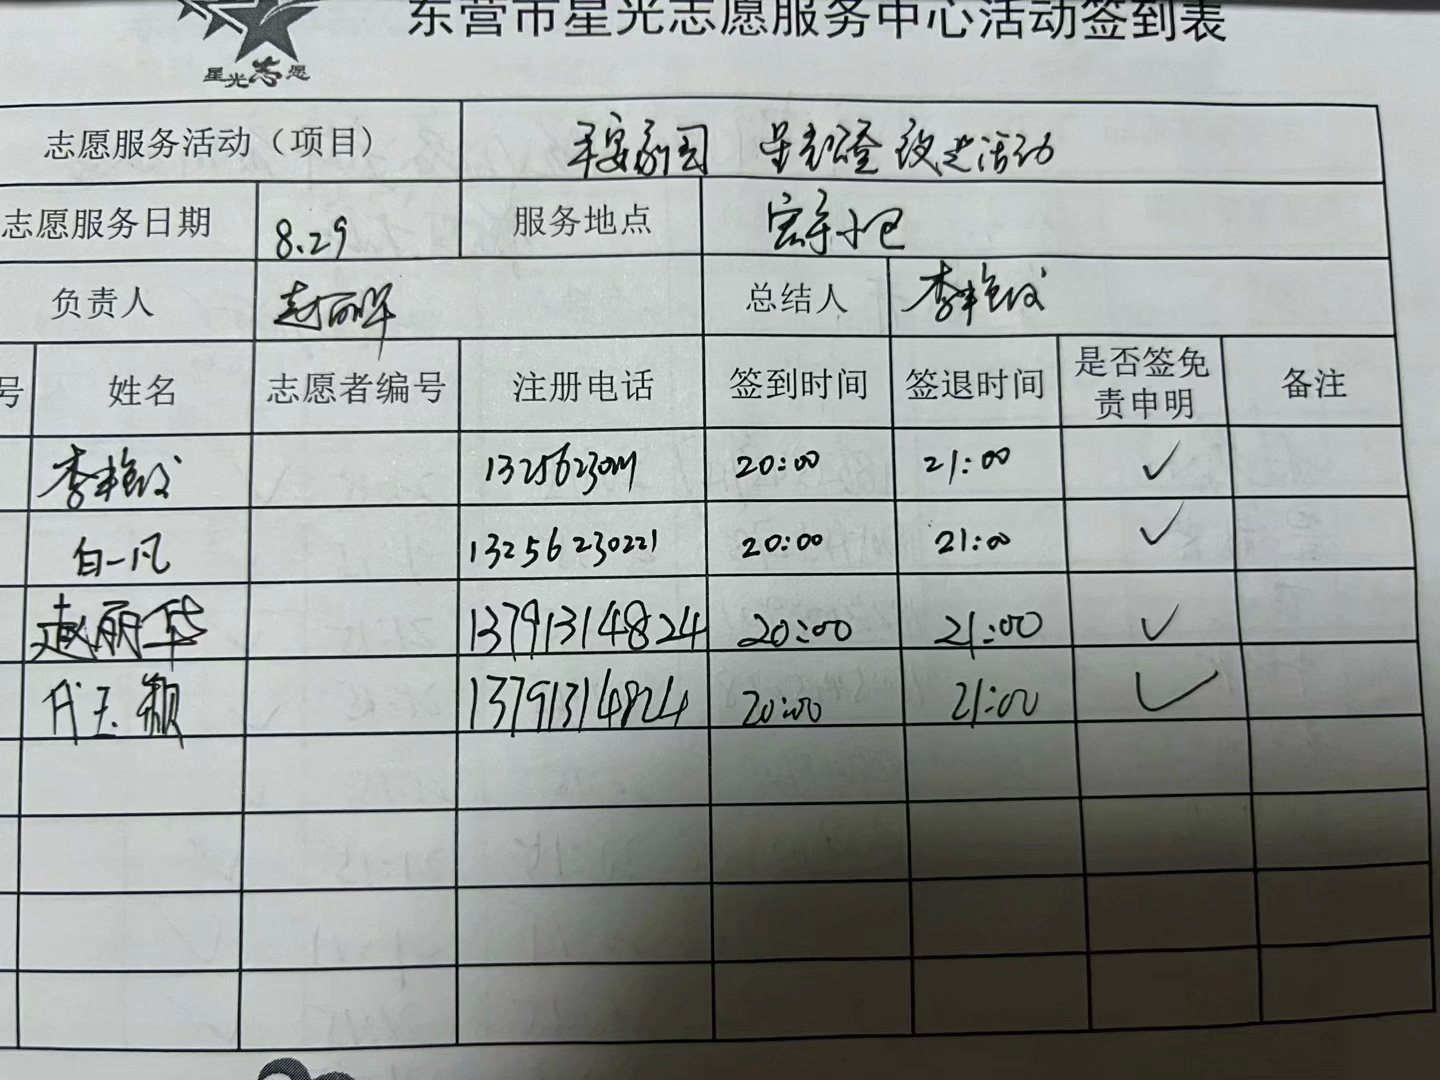 东营市星光志愿服务中心活动签到表
星光志愿
志愿服务活动（项目） 平安家园 星光 活动
志愿服务日期 8.29 服务地点 宏宇小区
负责人 赵丽华 总结人 李艳
号 姓名 志愿者编号 注册电话 签到时间 签退时间 是否签免责申明 备注
李艳 20:00 21:00 ✓
白一凡 13256230221 20:00 21:00 ✓
赵丽华 1379314824 20:00 21:00 ✓
代玉颖 1379314824 20:00 21:00 ✓